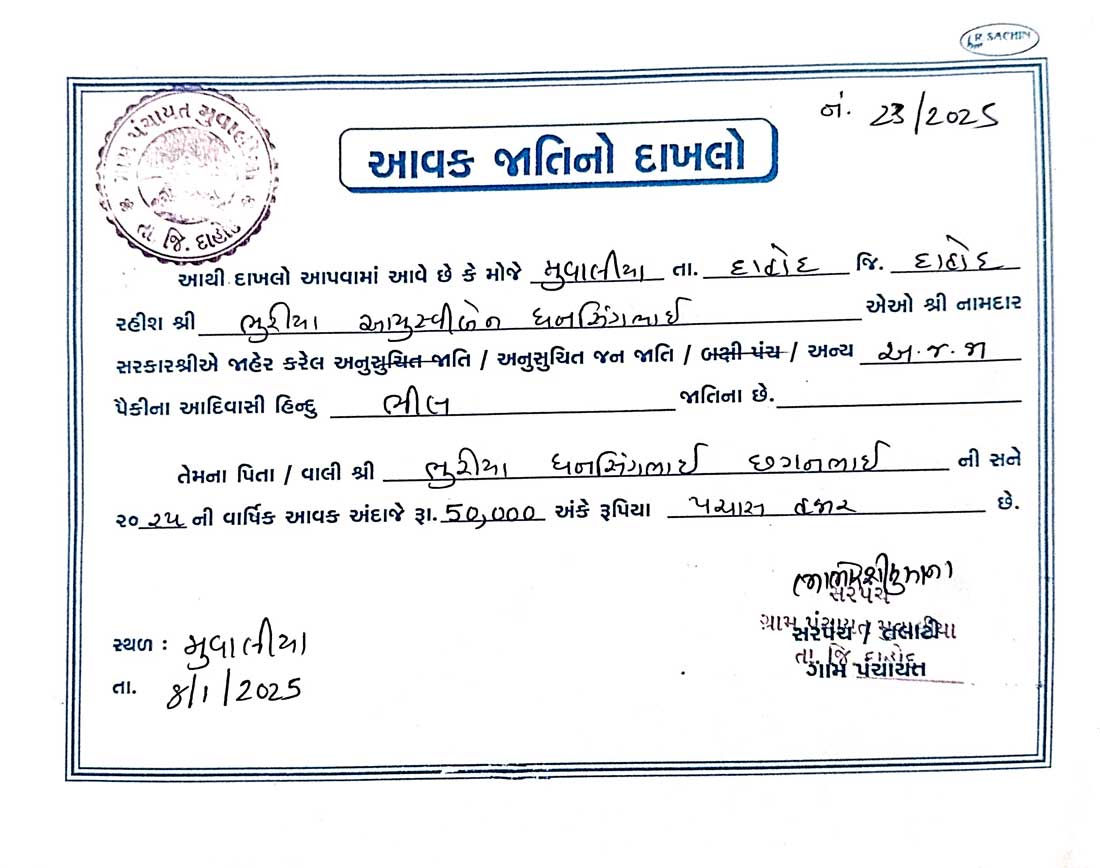 R SACHIN
નં. 23/2025
ગ્રામ પંચાયત મુવાલીયા
તા. જિ. દાહોદ
આવક જાતિનો દાખલો
આથી દાખલો આપવામાં આવે છે કે મોજે મુવાલીયા તા. દાહોદ જિ. દાહોદ
રહીશ શ્રી ભુરીયા આયુસ્વીબેન ધનસિંગભાઈ એઓ શ્રી નામદાર
સરકારશ્રીએ જાહેર કરેલ અનુસુચિત જાતિ / અનુસુચિત જન જાતિ / બક્ષી પંચ / અન્ય અ.જ.જા
પૈકીના આદિવાસી હિન્દુ ભીલ જાતિના છે.
તેમના પિતા / વાલી શ્રી ભુરીયા ધનસિંગભાઈ છગનભાઈ ની સને
૨૦૨૫ ની વાર્ષિક આવક અંદાજે રૂા. 50,000 અંકે રૂપિયા પચાસ હજાર છે.
સરપંચ
ગ્રામ પંચાયત મુવાલીયા
સરપંચ / તલાટી
તા. જિ. દાહોદ
ગામ પંચાયત
સ્થળ : મુવાલીયા
તા. 8/1/2025